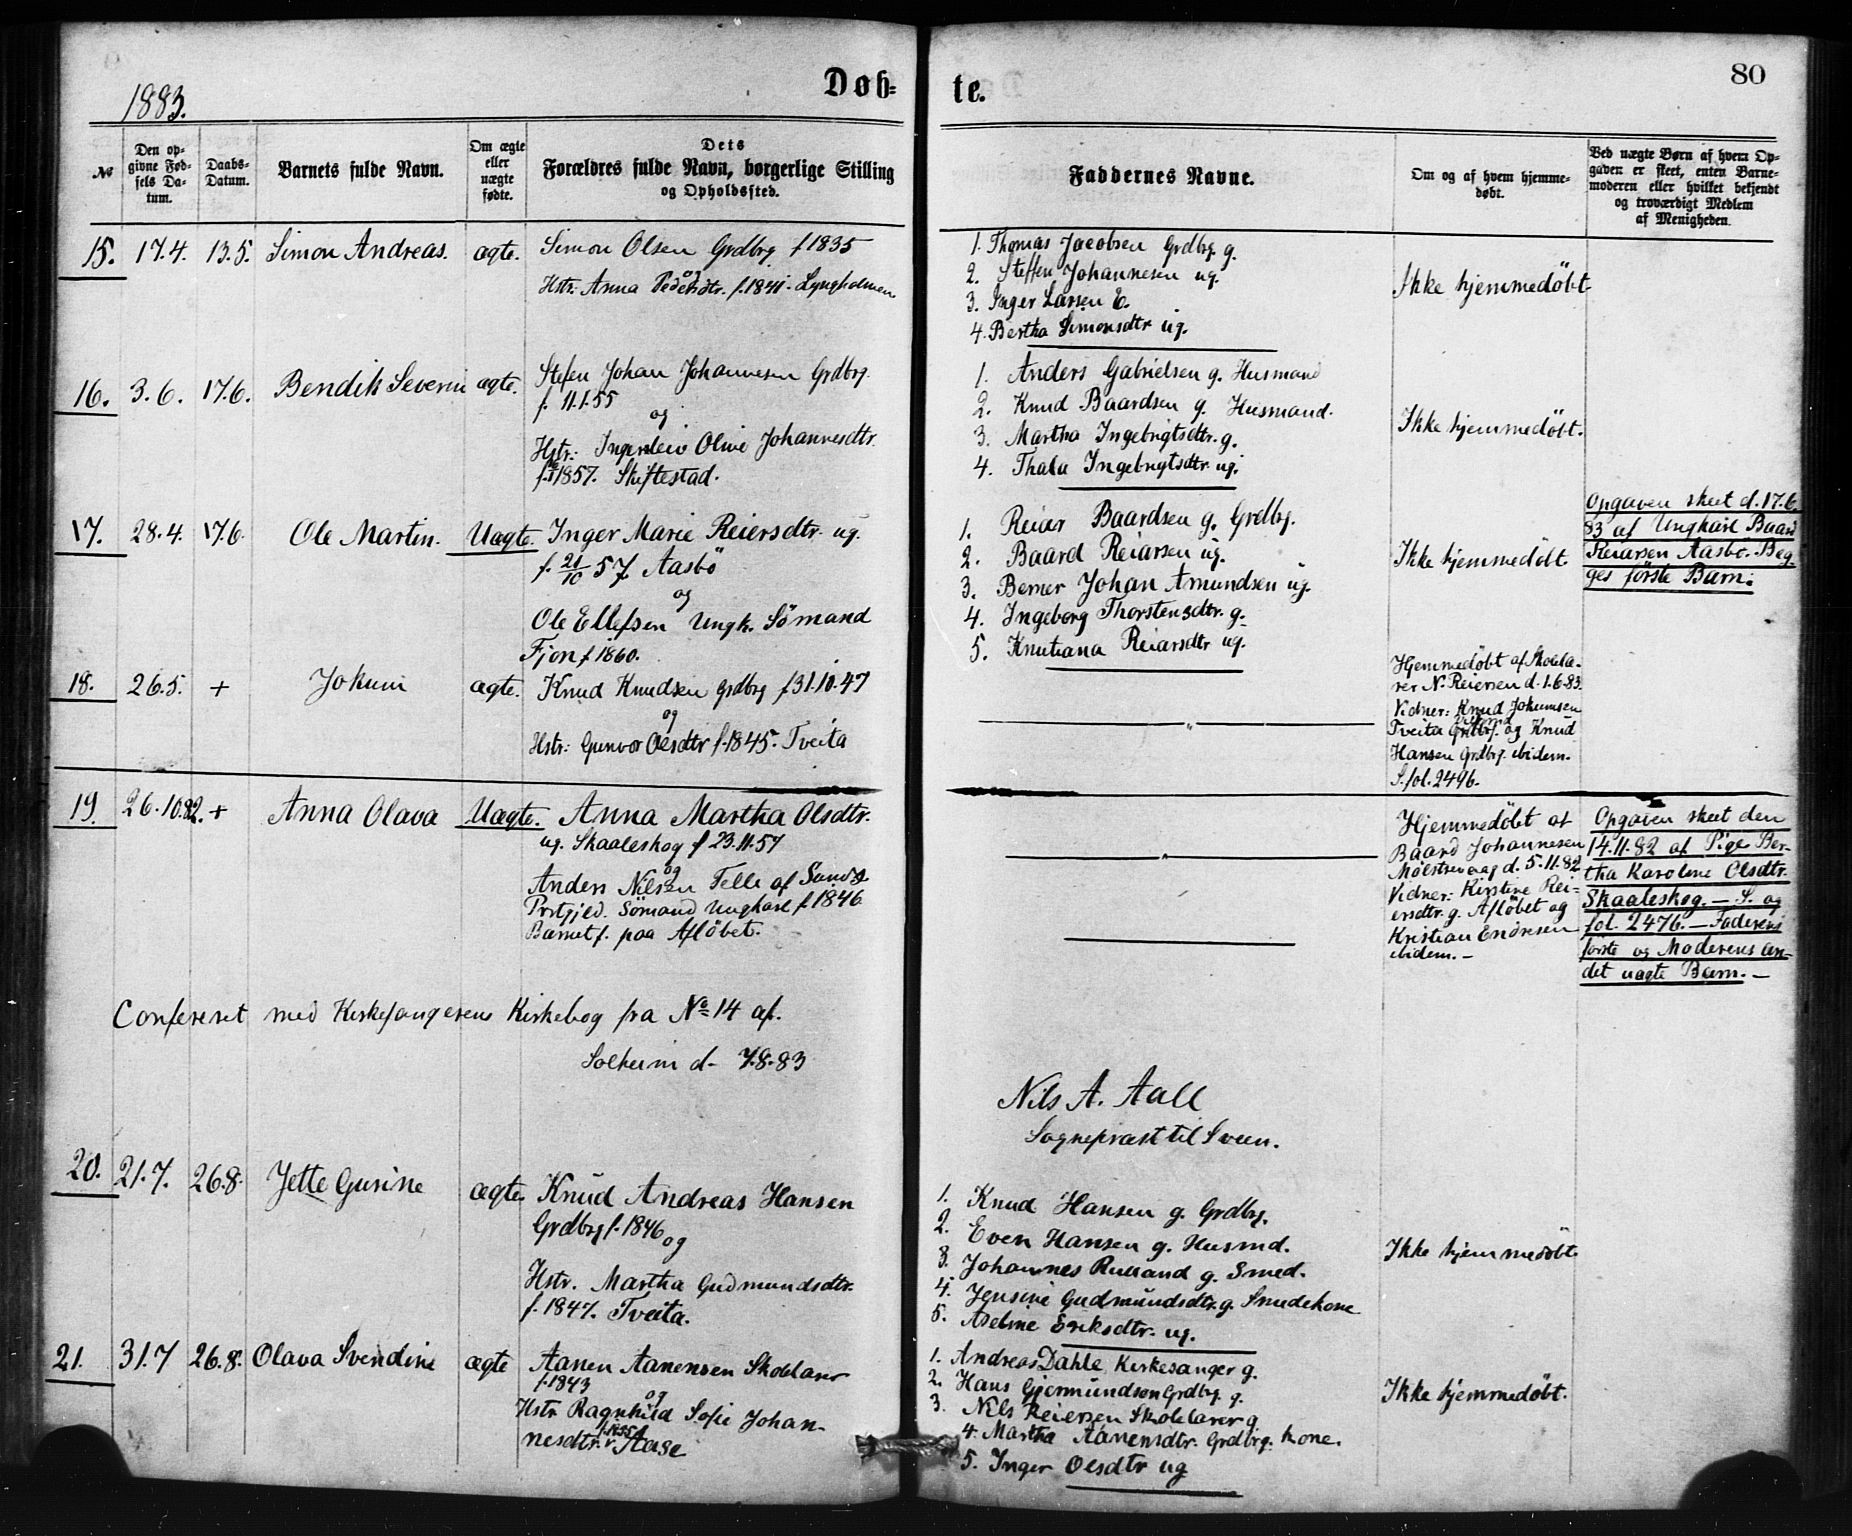 1883.
Døb-
te.
80
№
Den op-
givne Fød-
sels Da-
tum.
Daabs-
Datum.
Barnets fulde Navn.
Om ægte
eller
uægte
fødte.
Dets
Forældres fulde Navn, borgerlige Stilling
og Opholdssted.
Faddernes Navne.
Om og af hvem hjemme-
døbt.
Ved uægte Børn af hvem Op-
gaven er skeet, enten Barne-
moderen eller hvilket bekjendt
og troværdigt Medlem
af Menigheden.
15. 17.4. 13.5. Simon Andreas. ægte.
Simon Olsen Grdbrg f1835
og
Hstr. Anna Pedersdtr. f.1841. Lyngholmen
1. Thomas Jacobsen Grdbrg. g.
2. Steffen Johannesen ug.
3. Inger Larsen E.
4. Bertha Simonsdtr ug.
Ikke hjemmedöbt
16. 3.6. 17.6. Bendik Severin ægte.
Stefen Johan Johannesen Grdbrg.
f. 11.1.55
og
Hstr: Ingerleiv Olive Johannesdtr.
f. 1857. Skiftestad.
1. Anders Gabrielsen g. Husmand
2. Knud Baardsen g. Husmand.
3. Martha Ingebrigtsdtr. g.
4. Thala Ingebrigtsdtr ug.
Ikke hjemmedöbt.
17. 28.4. 17.6. Ole Martin. Uægte.
Inger Marie Reiersdtr. ug.
f. 21/10 57. Aasbö
og
Ole Ellefsen Ungk. Sömand
Fjon f 1860.
1. Reiar Baardsen g. Grdbrg.
2. Baard Reiarsen ug.
3. Berner Johan Amundsen ug.
4. Ingeborg Thorstensdtr. g.
5. Knutiana Reiarsdtr ug.
Ikke hjemmedöbt
Opgaven skeet d. 17.6.
83 af Ungkarl Baard
Reiarsen Aasbö. Beg-
ges förste Barn.
18. 26.5. + Jokum ægte.
Knud Knudsen Grdbrg f 31.10.47
og
Hstr: Gunvor Olsdtr f.1845. Tveita
"
Hjemmedöbt af Skolelæ-
rer N. Reiersen d. 1.6.83.
Vidner: Knud Jokumsen
Tveita Grdbrg. og Knud
Hansen Grdbrg. ibidem.
S. fol. 2496.
19. 26.10.82. + Anna Olava Uægte.
Anna Martha Olsdtr.
ug. Skaaleskog f 23.11.57
og
Anders Nilsen Felle af
Prstgjeld. Sömand Ungkarl f. 1846
Barnet f. paa Aflöbet.
"
Hjemmedöbt af
Baard Johannesen
Mölstrevaag d. 5.11.82
Vidner: Kirstine Rei-
ersdtr. g. Aflöbet og
Kristian Endresen
ibidem.-
Opgaven skeet den
14.11.82 af Pige Ber-
tha Karoline Olsdtr.
Skaaleskog. — S. og
fol. 2476. — Faderens
förste og Moderens an-
det uægte Barn. —
Confereret med Kirkesangerens Kirkebog fra № 14 af.
Solheim d- 7.8.83
Nils A. Aall
Sognepræst til Sveen.
20. 21.7. 26.8. Jette Gurine ægte.
Knud Andreas Hansen
Grdbrg f. 1846
og
Hstr. Martha Gudmundsdtr.
f. 1847. Tveita.
1. Knud Hansen g. Grdbrg.
2. Even Hansen g. Husmd.
3. Johannes Rulland g. Smed.
4. Jensine Gudmundsdtr. g. Smedekone
5. Aseline Eriksdtr. ug.
Ikke hjemmedöbt
21. 31.7 26.8. Olava Svendine ægte
Aanen Aanensen Skolelærer
f. 1843
og
Hstr Ragnhild Sofie Johan-
nesdtr. Aase
1. Andreas Dahle Kirkesanger g.
2. Hans Gjermundsen Grdbrg. g.
3. Nils Reiersen Skolelærer g
4. Martha Aanensdtr. Grdbrg. kone.
5. Inger Olsdtr ug
Ikke hjemmedöbt.